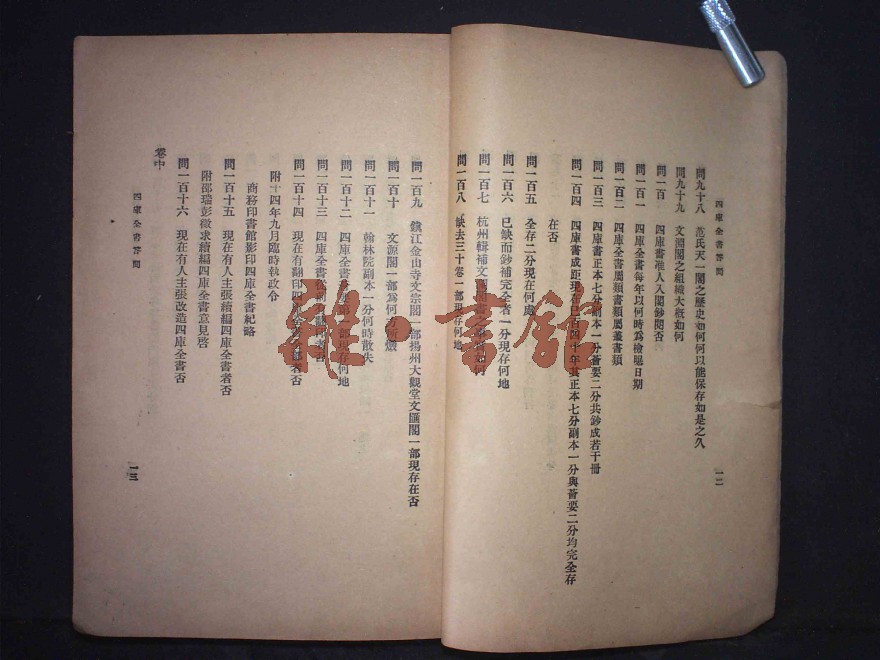 四庫全書答問
一二
問九十八　范氏天一閣之歷史如何何以能保存如是之久
問九十九　文淵閣之組織大槪如何
問一百　四庫書准人入閣鈔閱否
問一百一　四庫全書每年以何時為檢曝日期
問一百二　四庫全書屬類書類屬叢書類
問一百三　四庫書正本七分副本一分薈要二分共鈔成若干冊
問一百四　四庫書成距現在已百四十年其正本七分副本一分與薈要二分均完全存
在否
問一百五　全存二分現在何處
問一百六　已缺而鈔補完全者一分現存何地
問一百七　杭州輯補文瀾閣書
問一百八　缺去三十卷一部現存何地
問一百九　鎭江金山寺文宗閣一部揚州大觀堂文匯閣一部現存在否
問一百十　文源閣一部為何
問一百十一　翰林院副本一分何時散失
問一百十二　四庫全書
部現存何地
問一百十三　四庫全書
問一百十四　現在有翻印四庫全書
者否
附十四年九月臨時執政令
商務印書館影印四庫全書紀略
問一百十五　現在有人主張續編四庫全書者否
附邵瑞彭徵求續編四庫全書意見啓
問一百十六　現在有人主張改造四庫全書否
卷中
四庫全書答問
一三
雅·書館